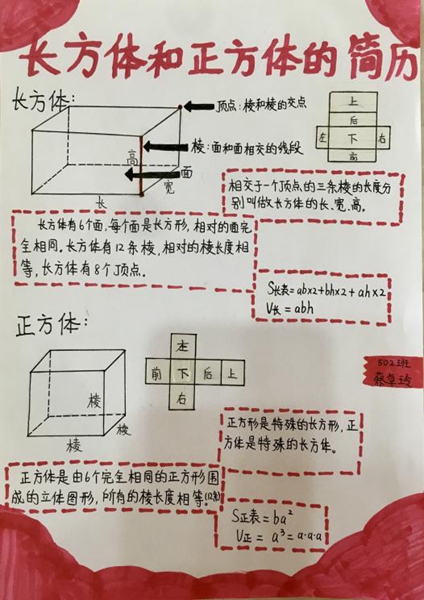 长方体和正方体的简历
长方体：
顶点：棱和棱的交点
棱：面和面相交的线段
面
高
宽
长
上
后
左 下 右
高
相交于一个顶点的三条棱的长度分
别叫做长方体的长、宽、高。
长方体有6个面，每个面是长方形，相对的面完
全相同。长方体有12条棱，相对的棱长度相
等，长方体有8个顶点。
S长表=abx2+bhx2+ahx2
V长=abh
正方体：
棱
棱
棱
左
前 下 后 上
右
502班
正方形是特殊的长方形，正
方体是特殊的长方体。
正方体是由6个完全相同的正方形围
成的立体图形，所有的棱长度相等。
S正表=ba²
V正=a³=a·a·a